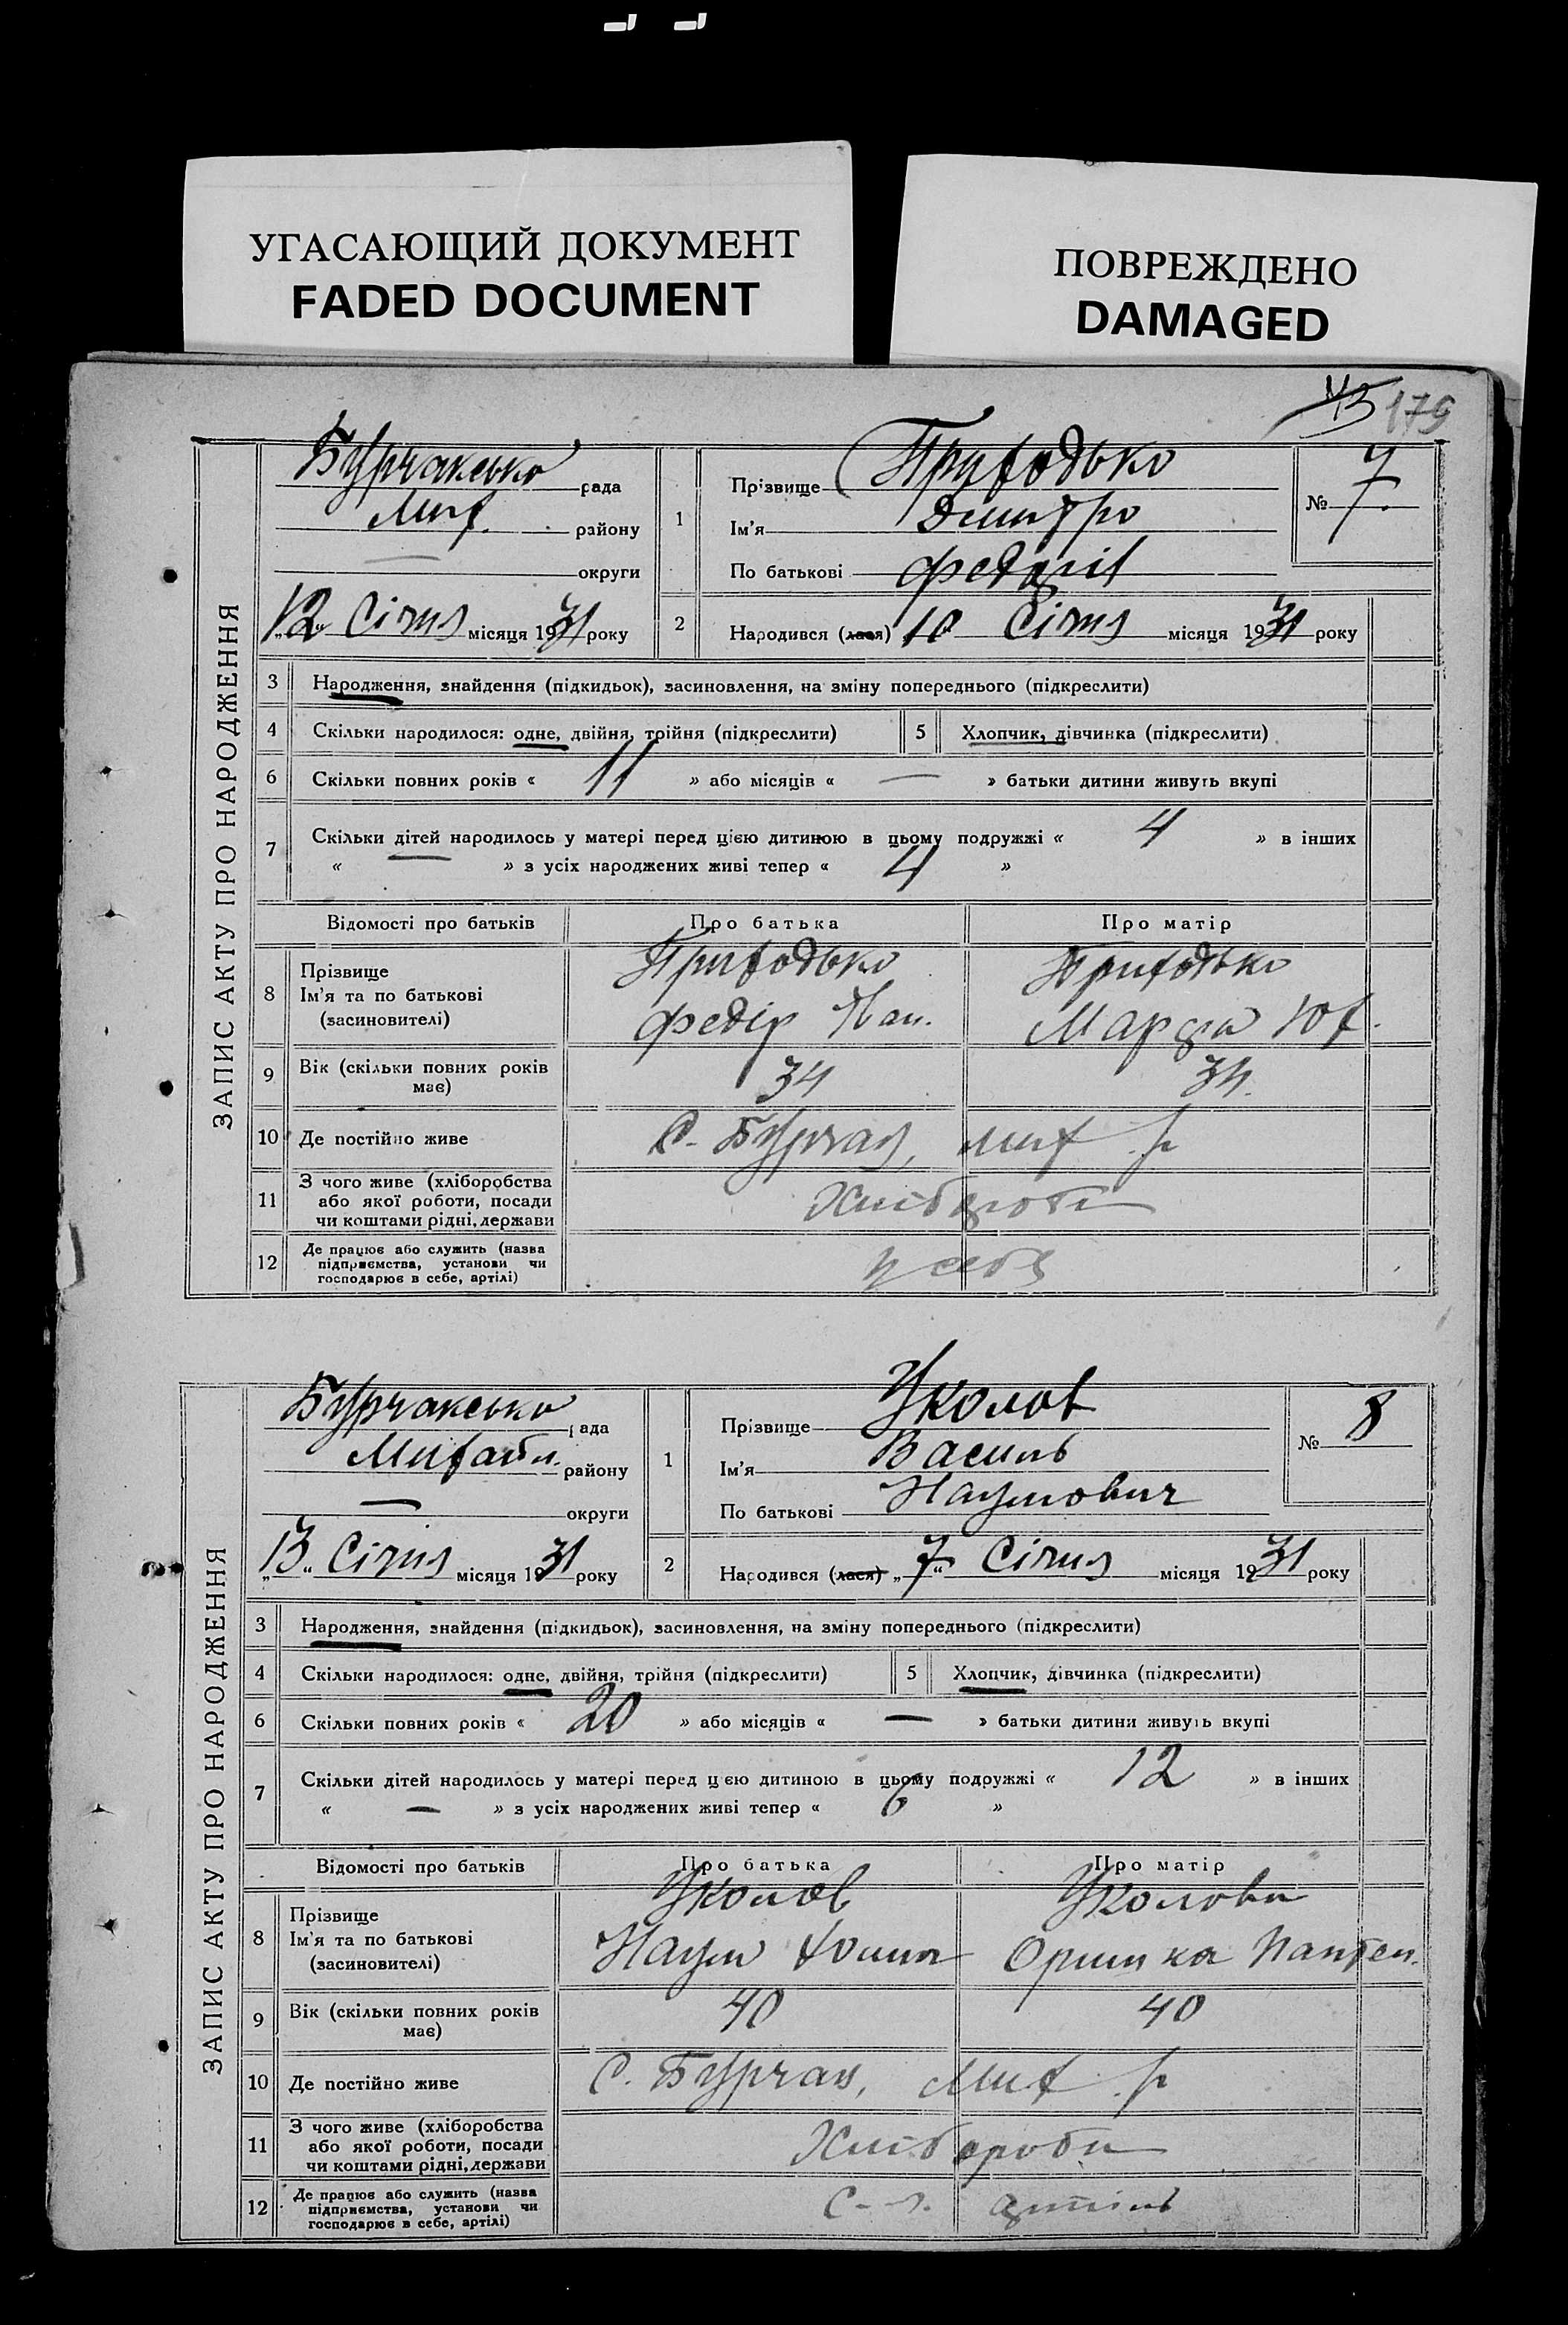 УГАСАЮЩИЙ ДОКУМЕНТ
FADED DOCUMENT
ПОВРЕЖДЕНО
DAMAGED
43 175
ЗАПИС АКТУ ПРО НАРОДЖЕННЯ
Бурчаксько рада
Мих. району
— округи
„12“ Січня місяця 1931 року
1 Прізвище Приходько
Ім'я Дмитро
По батькові Федорів
№ 7.
2 Народився (лася) 10 Січня місяця 1931 року
3 Народження, знайдення (підкидьок), засиновлення, на зміну попереднього (підкреслити)
4 Скільки народилося: одне, двійня, трійня (підкреслити) 5 Хлопчик, дівчинка (підкреслити)
6 Скільки повних років « 11 » або місяців « — » батьки дитини живуть вкупі
7 Скільки дітей народилось у матері перед цією дитиною в цьому подружжі « 4 » в інших
« — » з усіх народжених живі тепер « 4 »
Відомості про батьків Про батька Про матір
8 Прізвище Приходько Приходько
Ім'я та по батькові Федір Пан. Марфа Юх.
(засиновителі)
9 Вік (скільки повних років 34 34.
має)
10 Де постійно живе С. Бурчак, Мих. р
11 З чого живе (хліборобства Хлібороби
або якої роботи, посади
чи коштами рідні, держави
12 Де працює або служить (назва у себе
підприємства, установи чи
господарює в себе, артілі)
ЗАПИС АКТУ ПРО НАРОДЖЕННЯ
Бурчаксько рада
Михайл. району
— округи
„13“ Січня місяця 1931 року
1 Прізвище Уколов
Ім'я Василь
По батькові Наумович
№ 8
2 Народився (лася) „7“ Січня місяця 1931 року
3 Народження, знайдення (підкидьок), засиновлення, на зміну попереднього (підкреслити)
4 Скільки народилося: одне, двійня, трійня (підкреслити) 5 Хлопчик, дівчинка (підкреслити)
6 Скільки повних років « 20 » або місяців « — » батьки дитини живуть вкупі
7 Скільки дітей народилось у матері перед цією дитиною в цьому подружжі « 12 » в інших
« — » з усіх народжених живі тепер « 6 »
Відомості про батьків Про батька Про матір
8 Прізвище Уколов Уколова
Ім'я та по батькові Наум Хомич Оришка Пантел.
(засиновителі)
9 Вік (скільки повних років 40 40
має)
10 Де постійно живе С. Бурчак, Мих. р
11 З чого живе (хліборобства Хлібороби
або якої роботи, посади
чи коштами рідні, держави
12 Де працює або служить (назва С-г. артіль
підприємства, установи чи
господарює в себе, артілі)